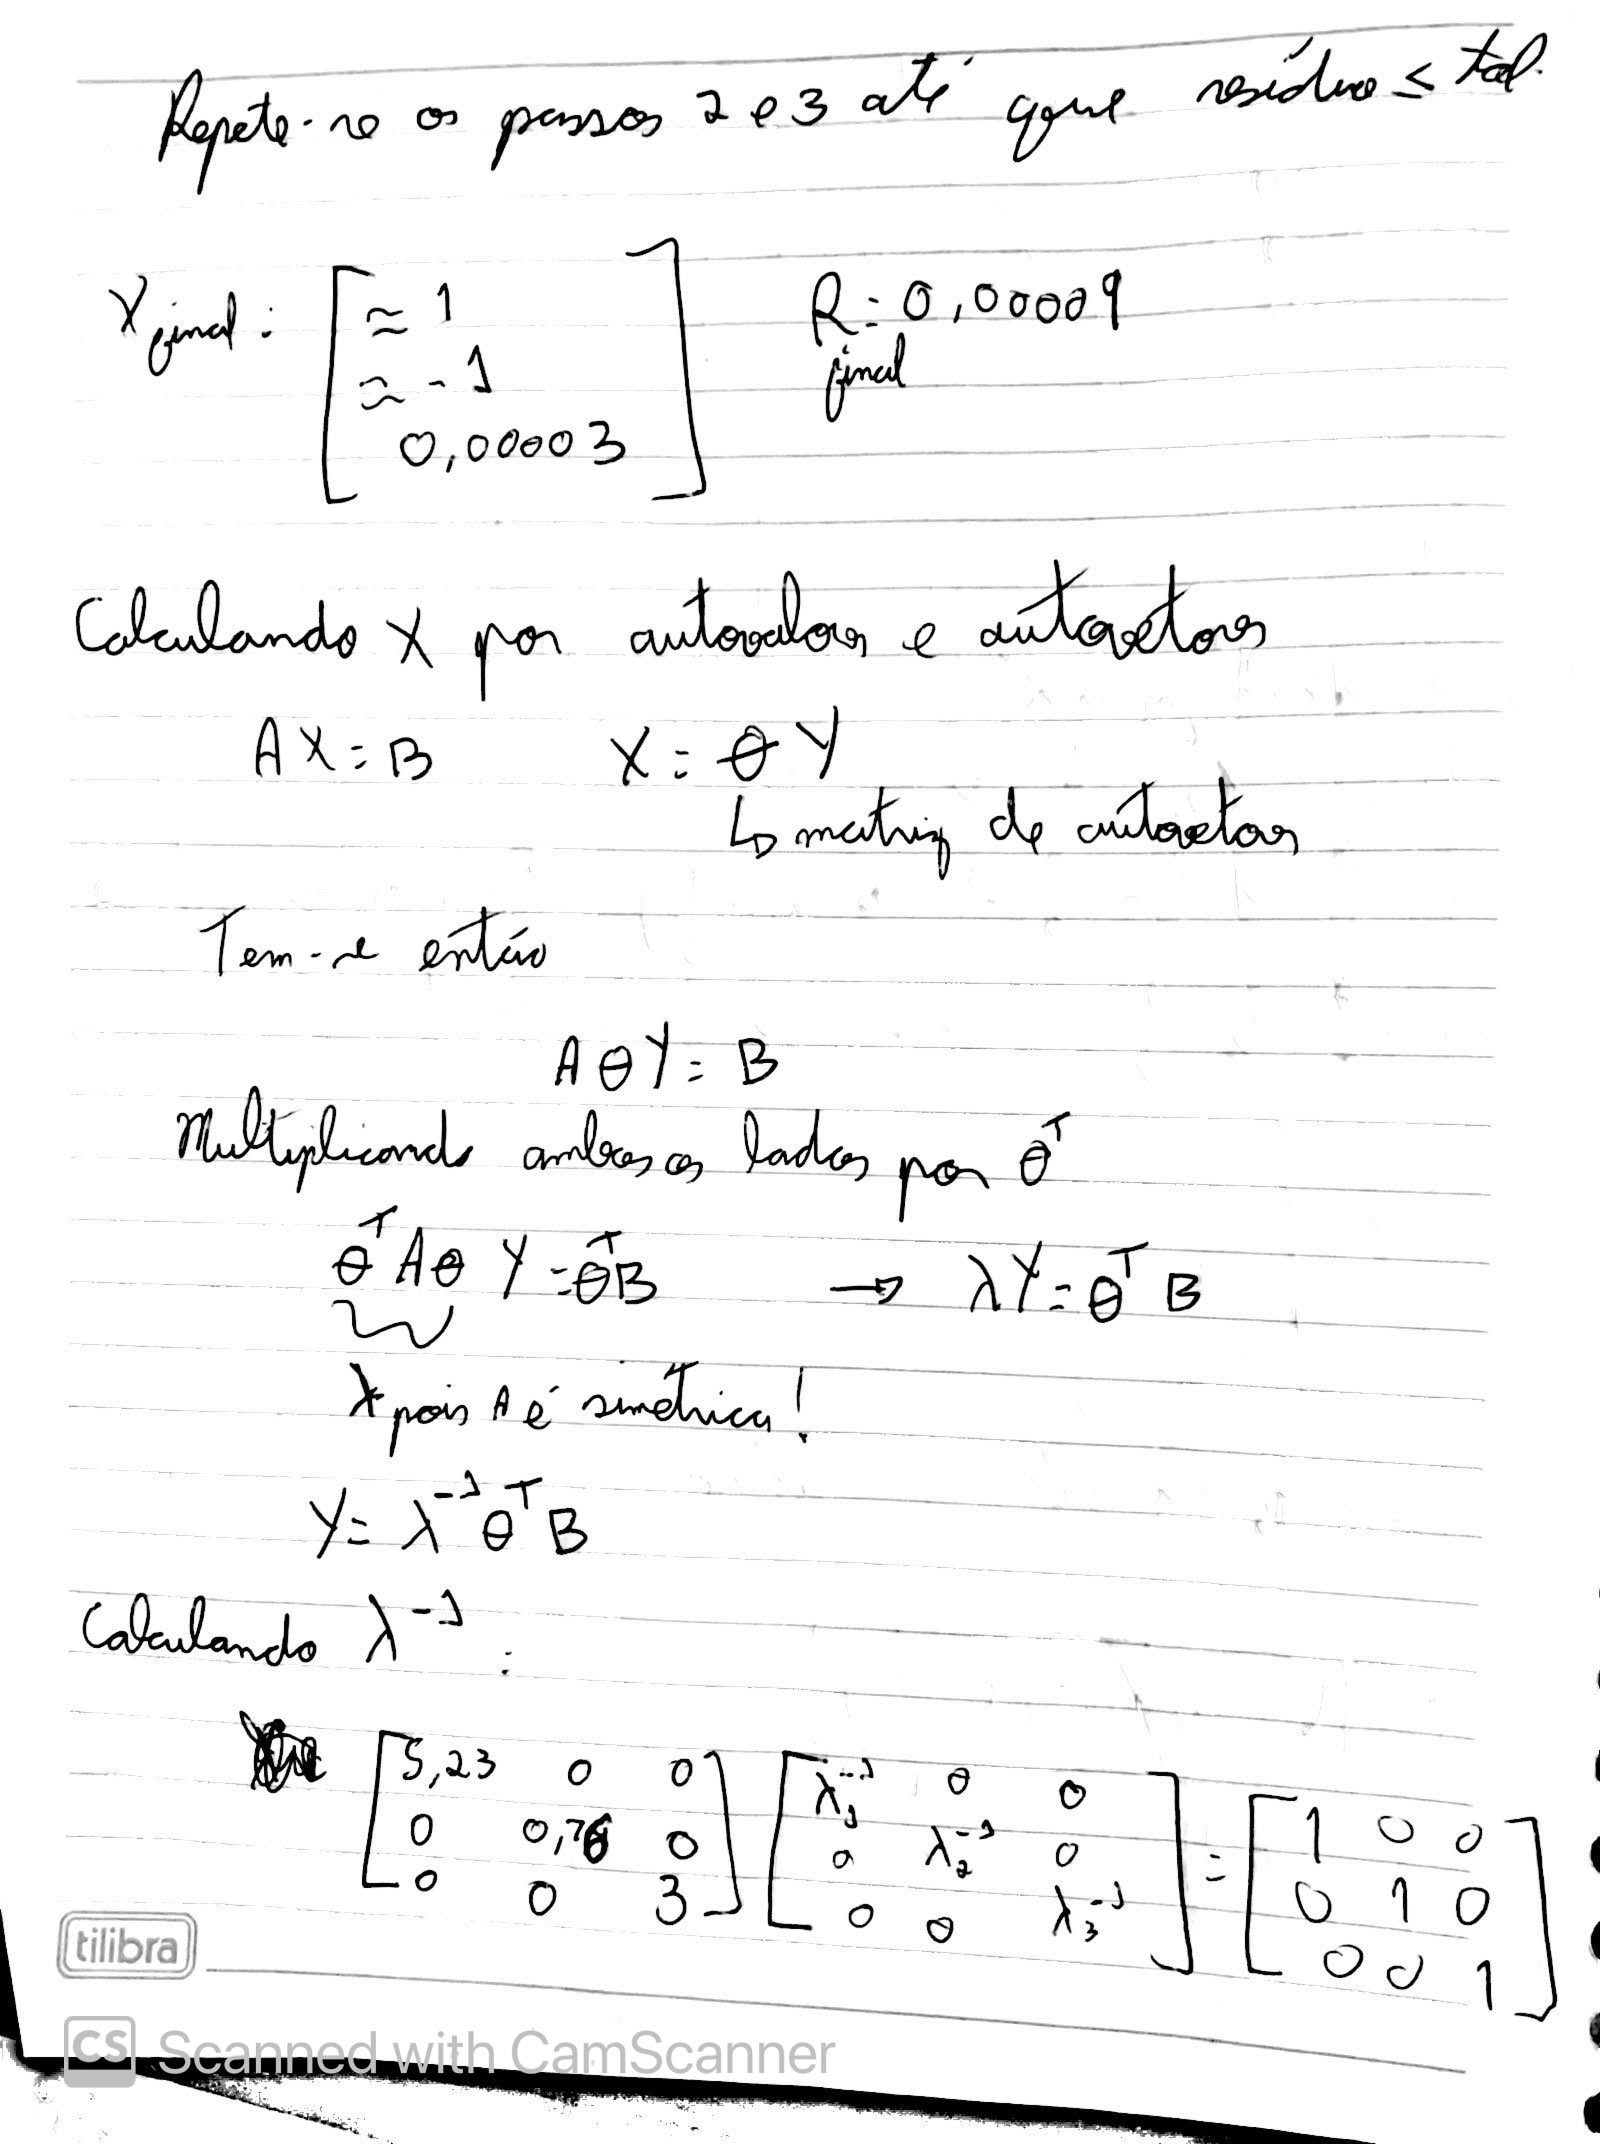 Repete-se os passos 2 e 3 até que resíduo ≤ tol.
X final: [ ≈ 1 R = 0,00009
≈ -1 final
0,00003 ]
Calculando X por autovalores e autovetores
AX = B X = θ Y
↳ matriz de autovetores
Tem-se então
A θ Y = B
Multiplicando ambos os lados por θ^T
θ^T A θ Y = θ^T B → λY = θ^T B
λ pois A é simétrica!
Y = λ^-1 θ^T B
Calculando λ^-1 :
[ 5,23 0 0 ] [ λ1^-1 0 0 ] = [ 1 0 0 ]
[ 0 0,76 0 ] [ 0 λ2^-1 0 ] [ 0 1 0 ]
[ 0 0 3 ] [ 0 0 λ3^-1 ] [ 0 0 1 ]
tilibra
CS Scanned with CamScanner